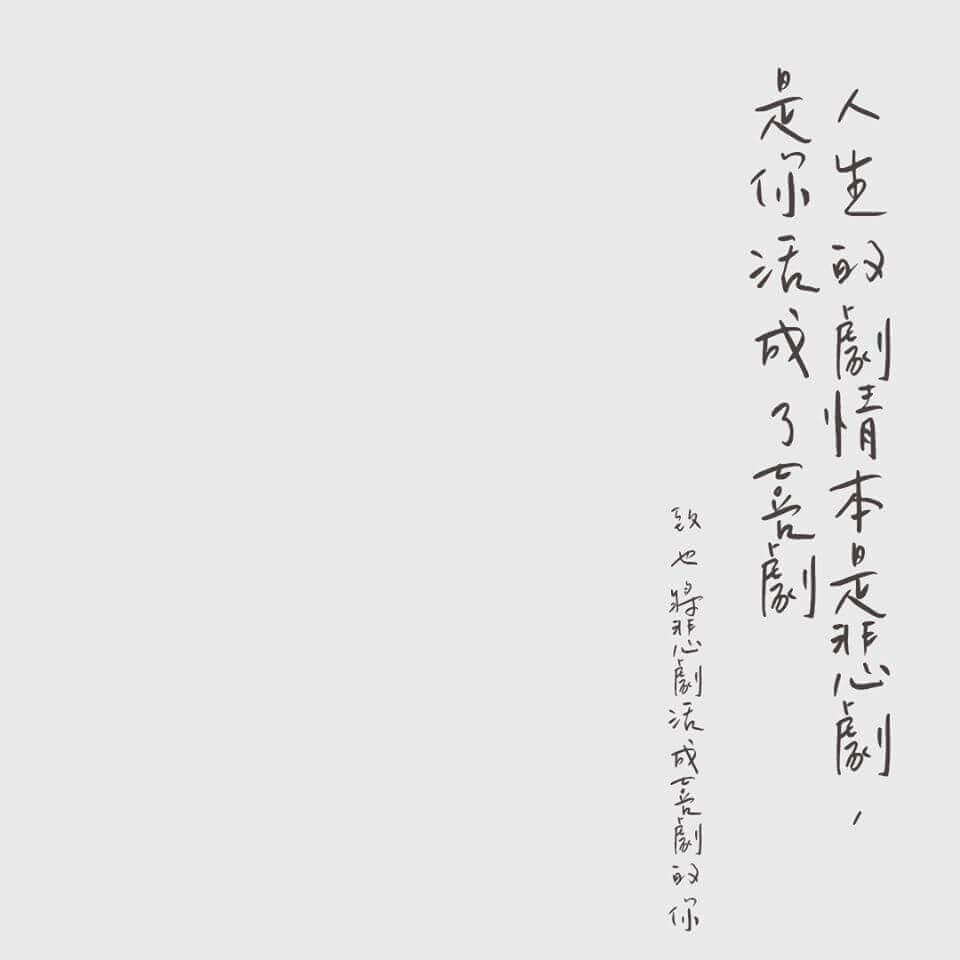 人生的劇情本是悲劇，
是你活成了喜劇
致也將悲劇活成喜劇的你